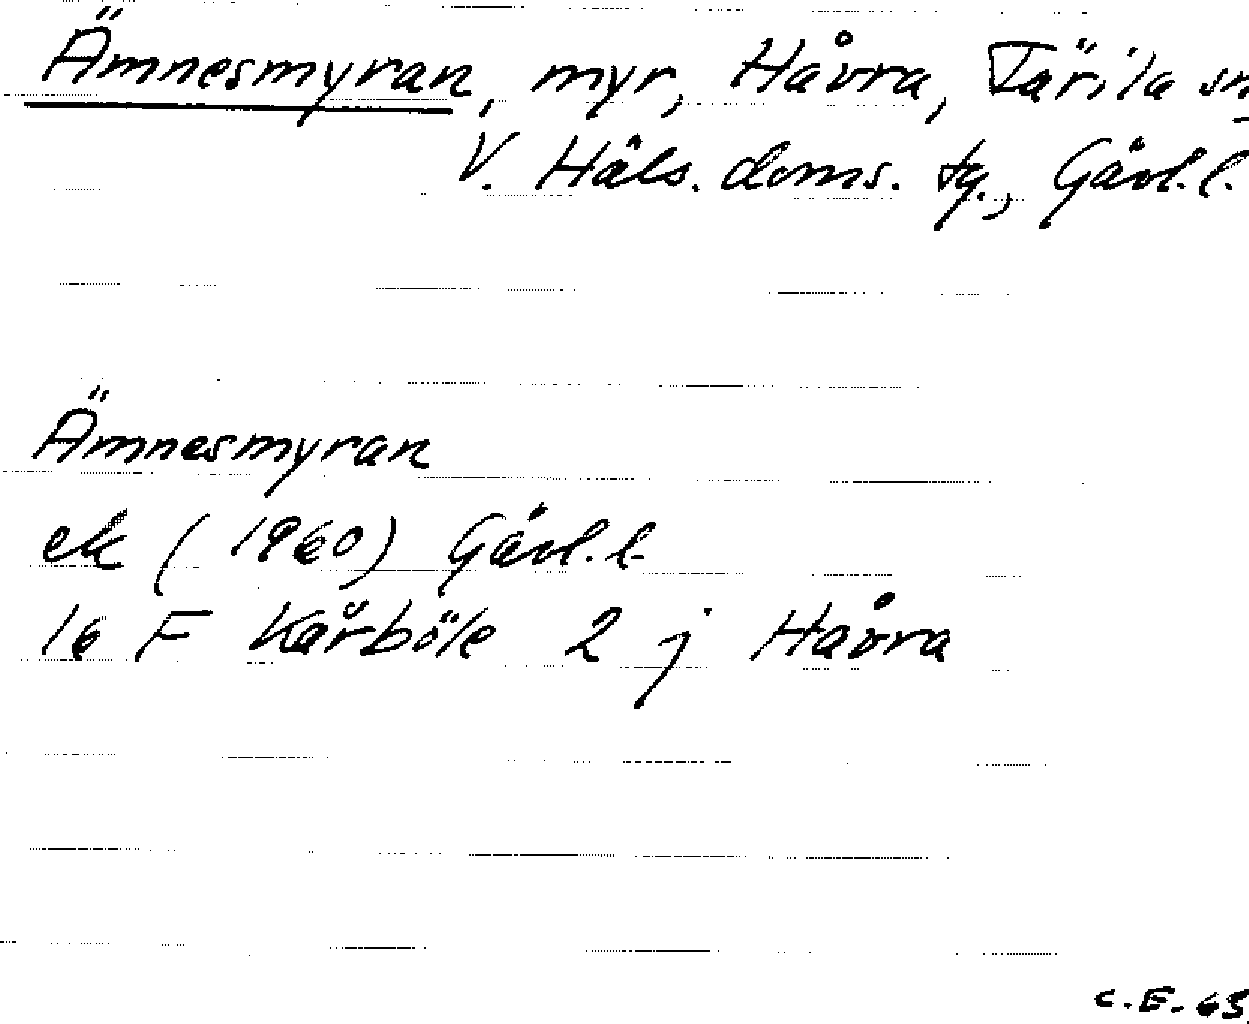 Ämnesmyran, myr, Håvra, Färila sn
V. Häls. doms. tg., Gävl. l.
Ämnesmyran
ek (1960) Gävl. l.
16 F Kårböle 2 j Håvra
C. E. 65